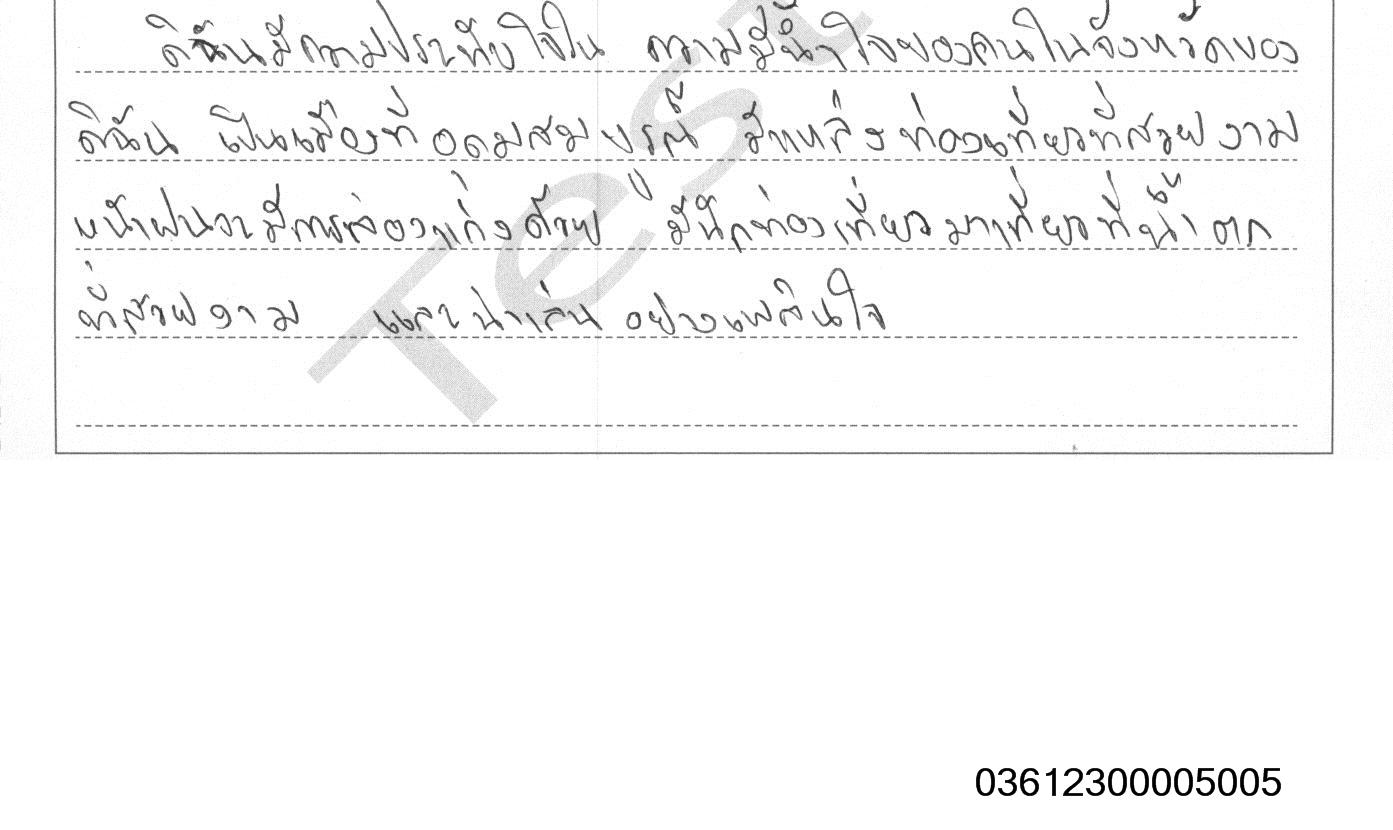 ดิฉันมีความประทับใจใน ความมีน้ำใจของคนในจังหวัดของ
ดิฉัน เป็นเมืองที่อุดมสมบูรณ์ มีแหล่งท่องเที่ยวที่สวยงาม
หน้าฝนจะมีการล่องแก่งด้วย มีนักท่องเที่ยวมาเที่ยวที่น้ำตก
ที่สวยงาม และน่าเล่น อย่างเพลินใจ
Test
03612300005005